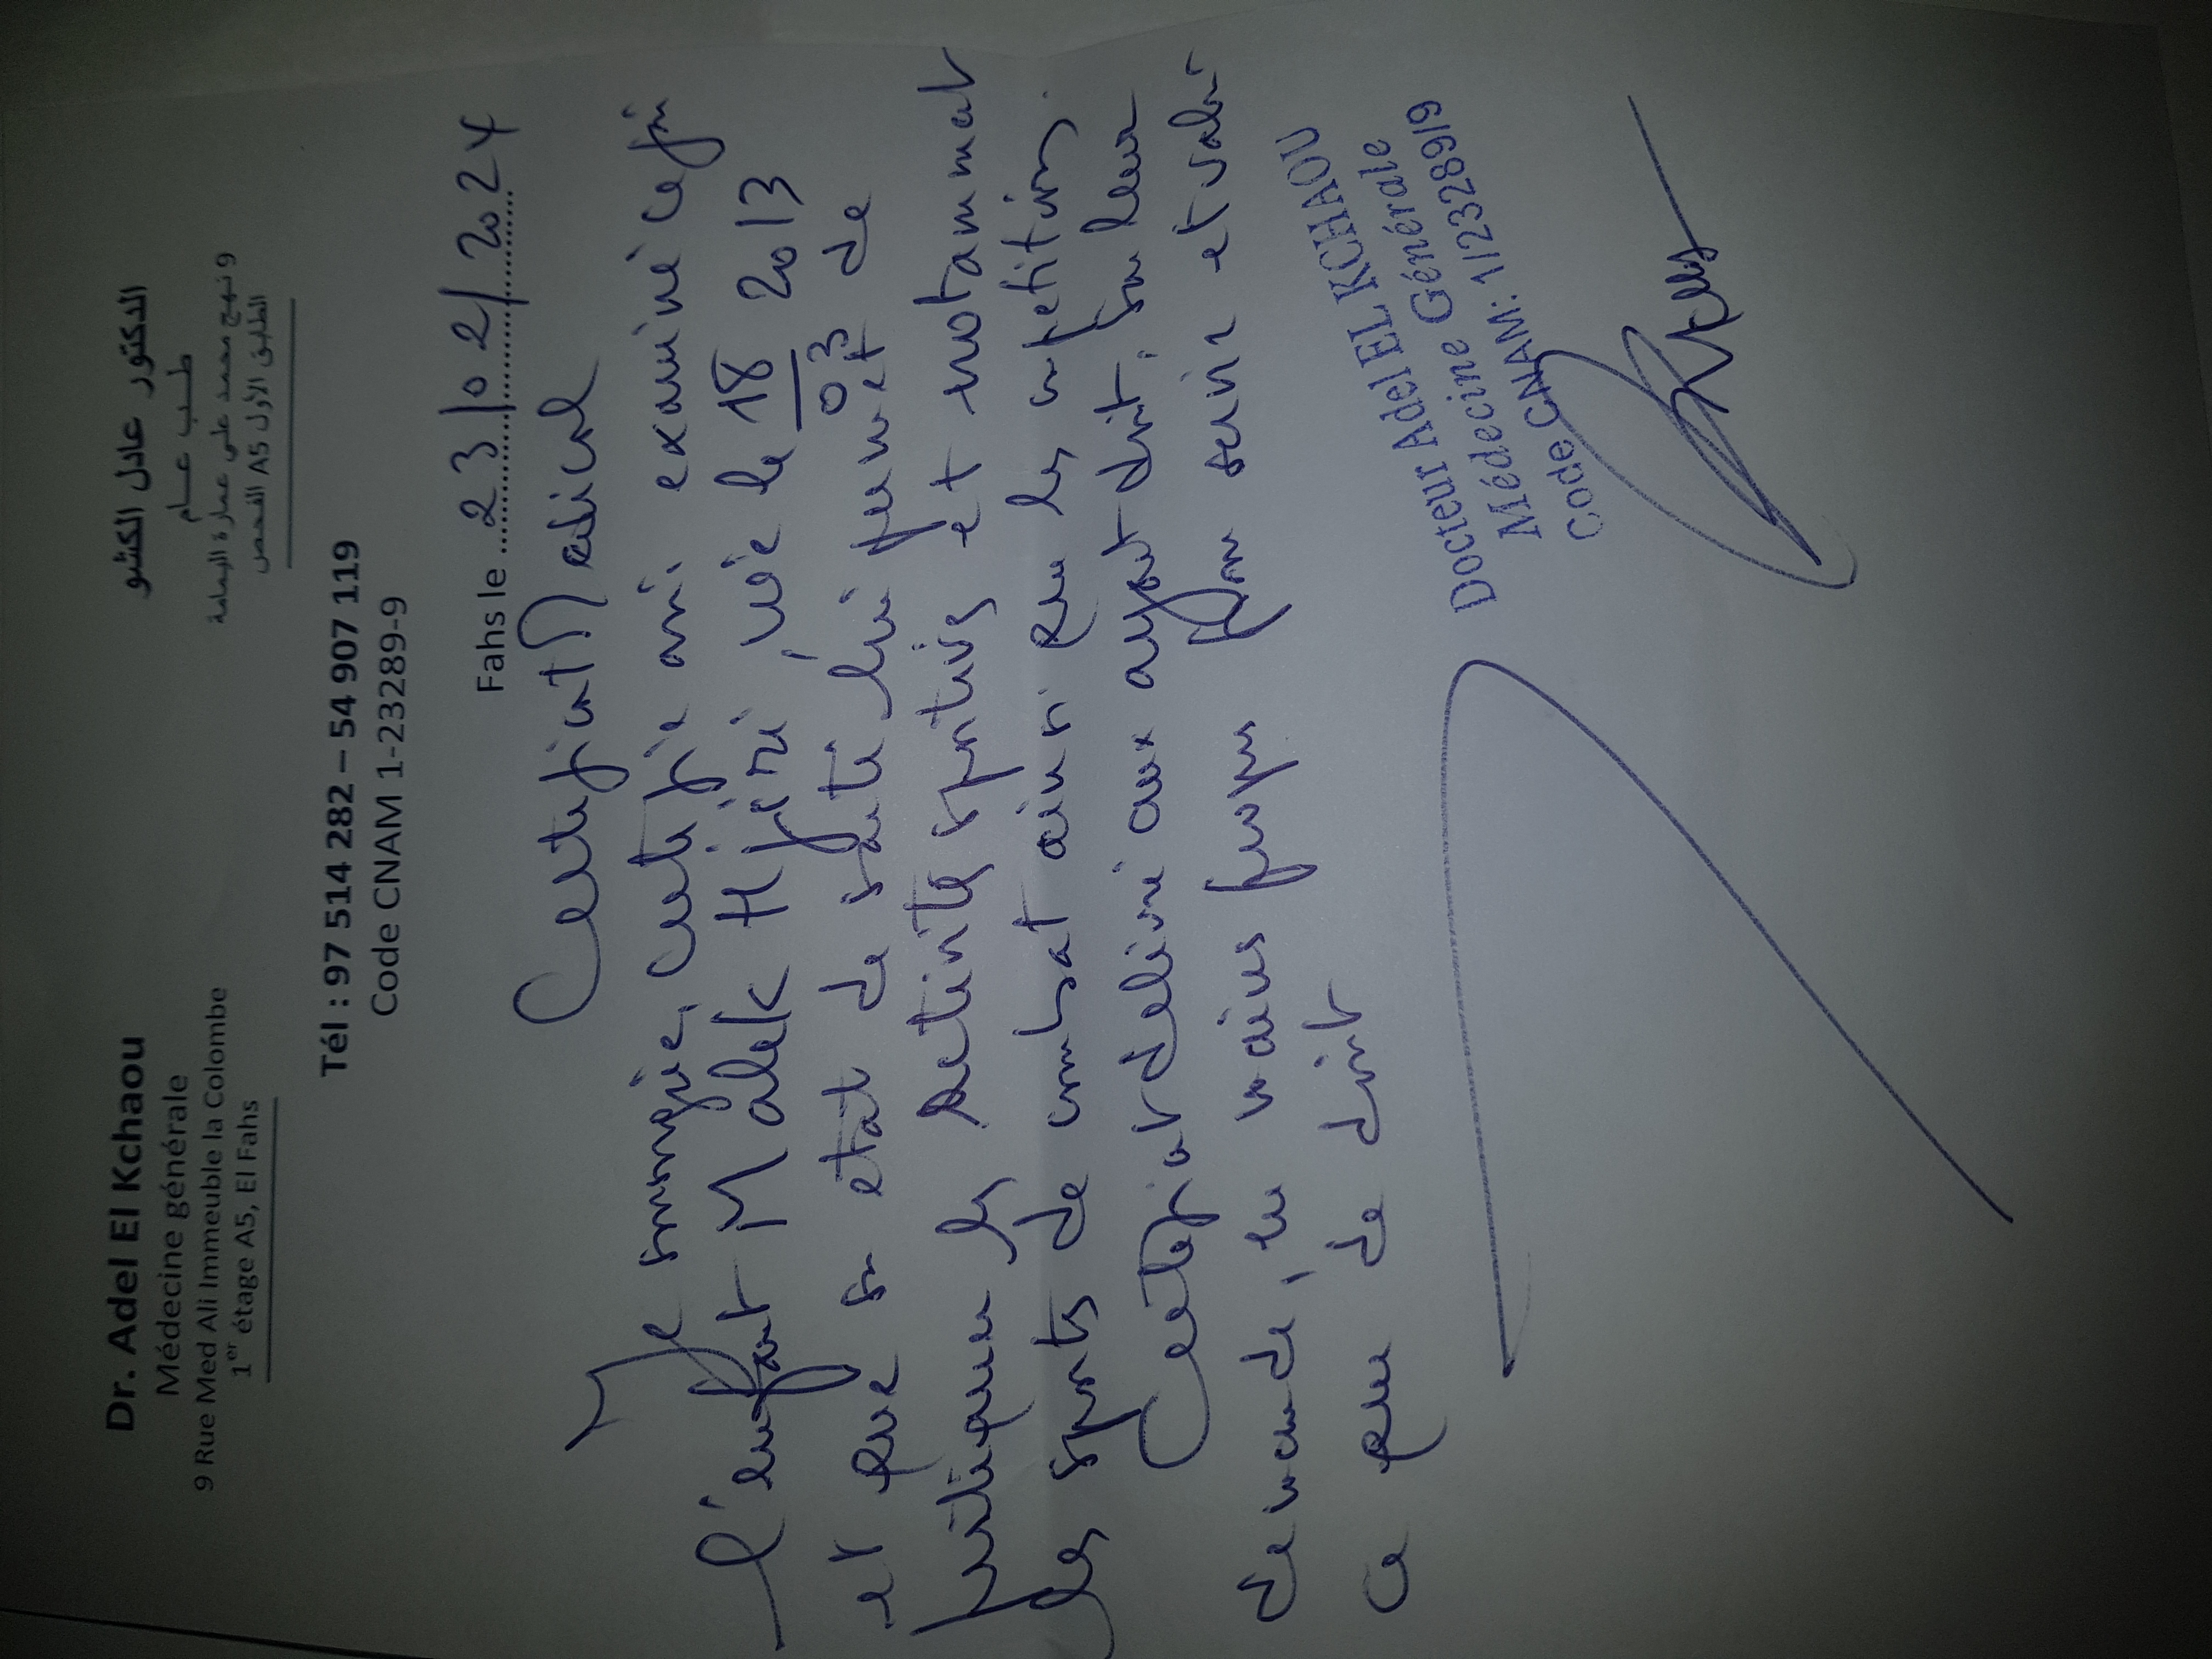 Dr. Adel El Kchaou
Médecine générale
9 Rue Med Ali Immeuble la Colombe
1er étage A5, El Fahs
الدكتور عادل الكشو
طب عام
9 نهج محمد علي عمارة اليمامة
الطابق الأول A5 الفحص
Tél : 97 514 282 – 54 907 119
Code CNAM 1-23289-9
Fahs le 23/02/2024
Certificat Medical
Je soussigné, certifie avoir examiné ce jour
l'enfant Malek Hfeni, née le 18 03 2013
et que son etat de santé lui permet de
pratiquer les activités sportives et notamment
les sports de combat ainsi que les competitions.
Certificat delivré aux ayant droit, sur leur
demande, en mains propres pour servir et valoir
ce que de droit
Docteur Adel EL KCHAOU
Médecine Générale
Code CNAM: 1/23289/9